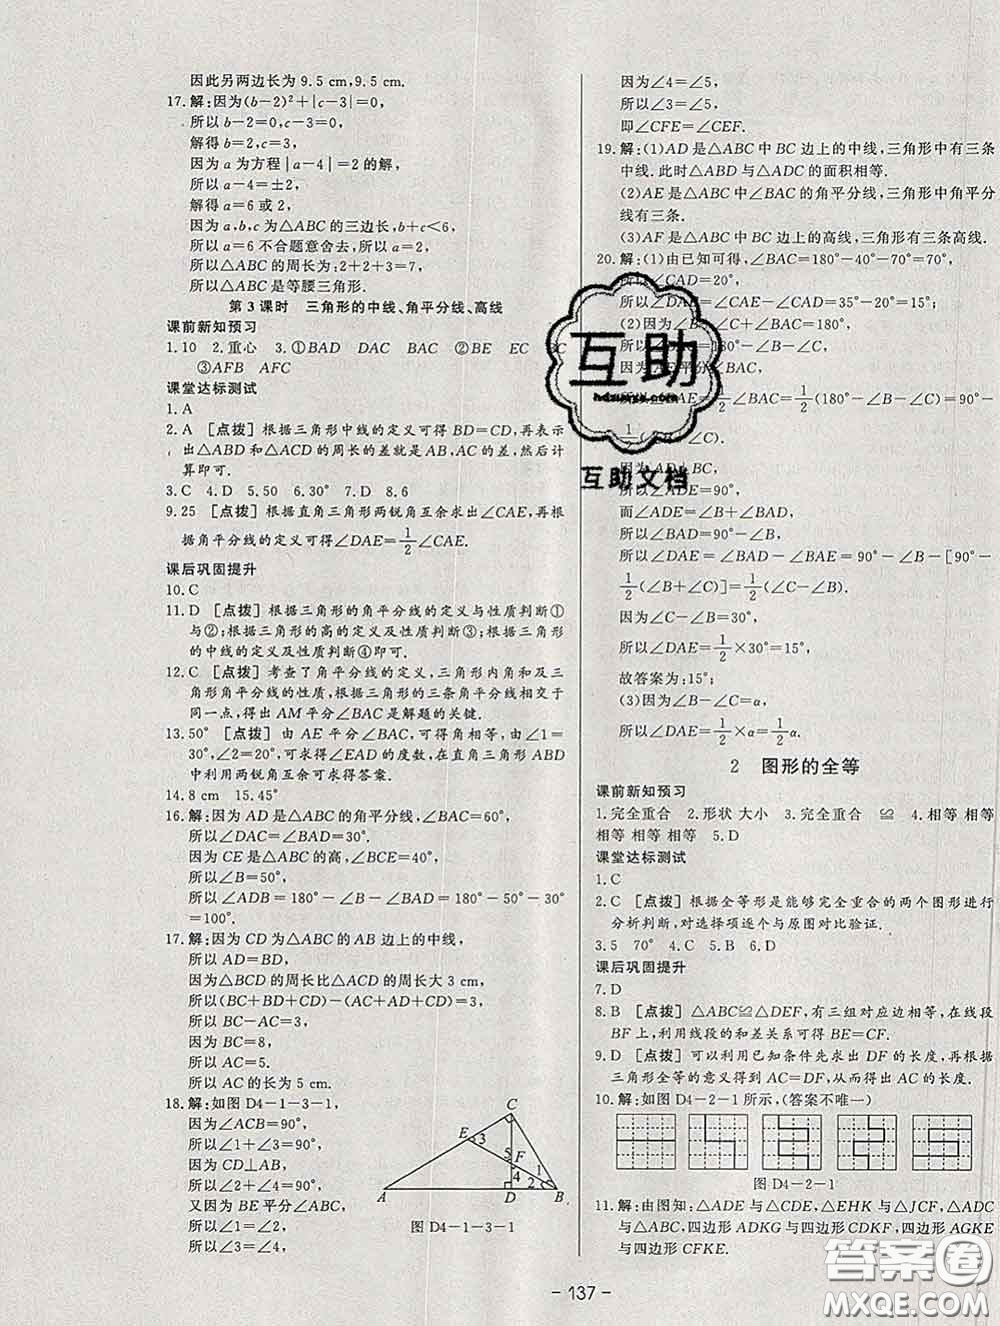 因此另两边长为9.5 cm,9.5 cm.
17.解:因为(b-2)²+|c-3|=0,
所以b-2=0,c-3=0,
解得b=2,c=3,
因为a为方程|a-4|=2的解,
所以a-4=±2,
解得a=6或2,
因为a,b,c为△ABC的三边长,b+c<6,
所以a=6不合题意舍去,所以a=2,
所以△ABC的周长为:2+2+3=7,
所以△ABC是等腰三角形.
第3课时 三角形的中线、角平分线、高线
课前新知预习
1.10 2.重心 3.①BAD DAC BAC ②BE EC BC
③AFB AFC
课堂达标测试
1.A
2.A [点拨]根据三角形中线的定义可得BD=CD,再表示
出△ABD和△ACD的周长的差就是AB,AC的差,然后计
算即可.
3.C 4.D 5.50 6.30° 7.D 8.6
9.25 [点拨]根据直角三角形两锐角互余求出∠CAE,再根
据角平分线的定义可得∠DAE=1/2∠CAE.
课后巩固提升
10.C
11.D [点拨]根据三角形的角平分线的定义与性质判断①
与②;根据三角形的高的定义及性质判断③;根据三角形
的中线的定义及性质判断④即可.
12.C [点拨]考查了角平分线的定义,三角形内角和及三
角形角平分线的性质,根据三角形的三条角平分线相交于
同一点,得出AM平分∠BAC是解题的关键.
13.50° [点拨]由AE平分∠BAC,可得角相等,由∠1=
30°,∠2=20°,可求得∠EAD的度数,在直角三角形ABD
中利用两锐角互余可求得答案.
14.8 cm 15.45°
16.解:因为AD是△ABC的角平分线,∠BAC=60°,
所以∠DAC=∠BAD=30°.
因为CE是△ABC的高,∠BCE=40°,
所以∠B=50°,
所以∠ADB=180°-∠B-∠BAD=180°-50°-30°
=100°.
17.解:因为CD为△ABC的AB边上的中线,
所以AD=BD,
因为△BCD的周长比△ACD的周长大3 cm,
所以(BC+BD+CD)-(AC+AD+CD)=3,
所以BC-AC=3,
因为BC=8,
所以AC=5.
所以AC的长为5 cm.
18.解:如图D4-1-3-1,
因为∠ACB=90°,
所以∠1+∠3=90°,
因为CD⊥AB,
所以∠2+∠4=90°,
又因为BE平分∠ABC,
所以∠1=∠2,
所以∠3=∠4,
C
E 3
5 F
4 1
2
A D B
图D4-1-3-1
因为∠4=∠5,
所以∠3=∠5,
即∠CFE=∠CEF.
19.解:(1)AD是△ABC中BC边上的中线,三角形中有三条
中线.此时△ABD与△ADC的面积相等.
(2)AE是△ABC中∠BAC的角平分线,三角形中角平分
线有三条.
(3)AF是△ABC中BC边上的高线,三角形有三条高线.
20.解:(1)由已知可得,∠BAC=180°-40°-70°=70°,
所以∠CAD=20°,
所以∠DAE=∠CAE-∠CAD=35°-20°=15°;
(2)因为∠B+∠C+∠BAC=180°,
所以∠BAC=180°-∠B-∠C,
因为AE平分∠BAC,
所以∠BAE=1/2∠BAC=1/2(180°-∠B-∠C)=90°-
1/2(∠B+∠C).
因为AD⊥BC,
所以∠ADE=90°,
而∠ADE=∠B+∠BAD,
所以∠BAD=90°-∠B,
所以∠DAE=∠BAD-∠BAE=90°-∠B-[90°-
1/2(∠B+∠C)]=1/2(∠C-∠B),
因为∠C-∠B=30°,
所以∠DAE=1/2×30°=15°,
故答案为:15°;
(3)因为∠B-∠C=α,
所以∠DAE=1/2×α=1/2α.
2 图形的全等
课前新知预习
1.完全重合 2.形状 大小 3.完全重合 ≌ 4.相等 相等
相等 相等 相等 5.D
课堂达标测试
1.C
2.C [点拨]根据全等形是能够完全重合的两个图形进行
分析判断,对选择项逐个与原图对比验证.
3.5 70° 4.C 5.B 6.D
课后巩固提升
7.D
8.B [点拨]△ABC≌△DEF,有三组对应边相等,在线段
BF上,利用线段的和差关系可得BE=CF.
9.D [点拨]可以利用已知条件先求出DF的长度,再根据
三角形全等的意义得到DF=AC,从而得出AC的长度.
10.解:如图D4-2-1所示,(答案不唯一)
图D4-2-1
11.解:由图知:△ADE与△CDE,△EHK与△JCF,△ADC
与△ABC,四边形ADKG与四边形CDKF,四边形AGKE
与四边形CFKE.
- 137 -
互助
hdzuoye.com
互助文档
答案圈
MXQE.COM